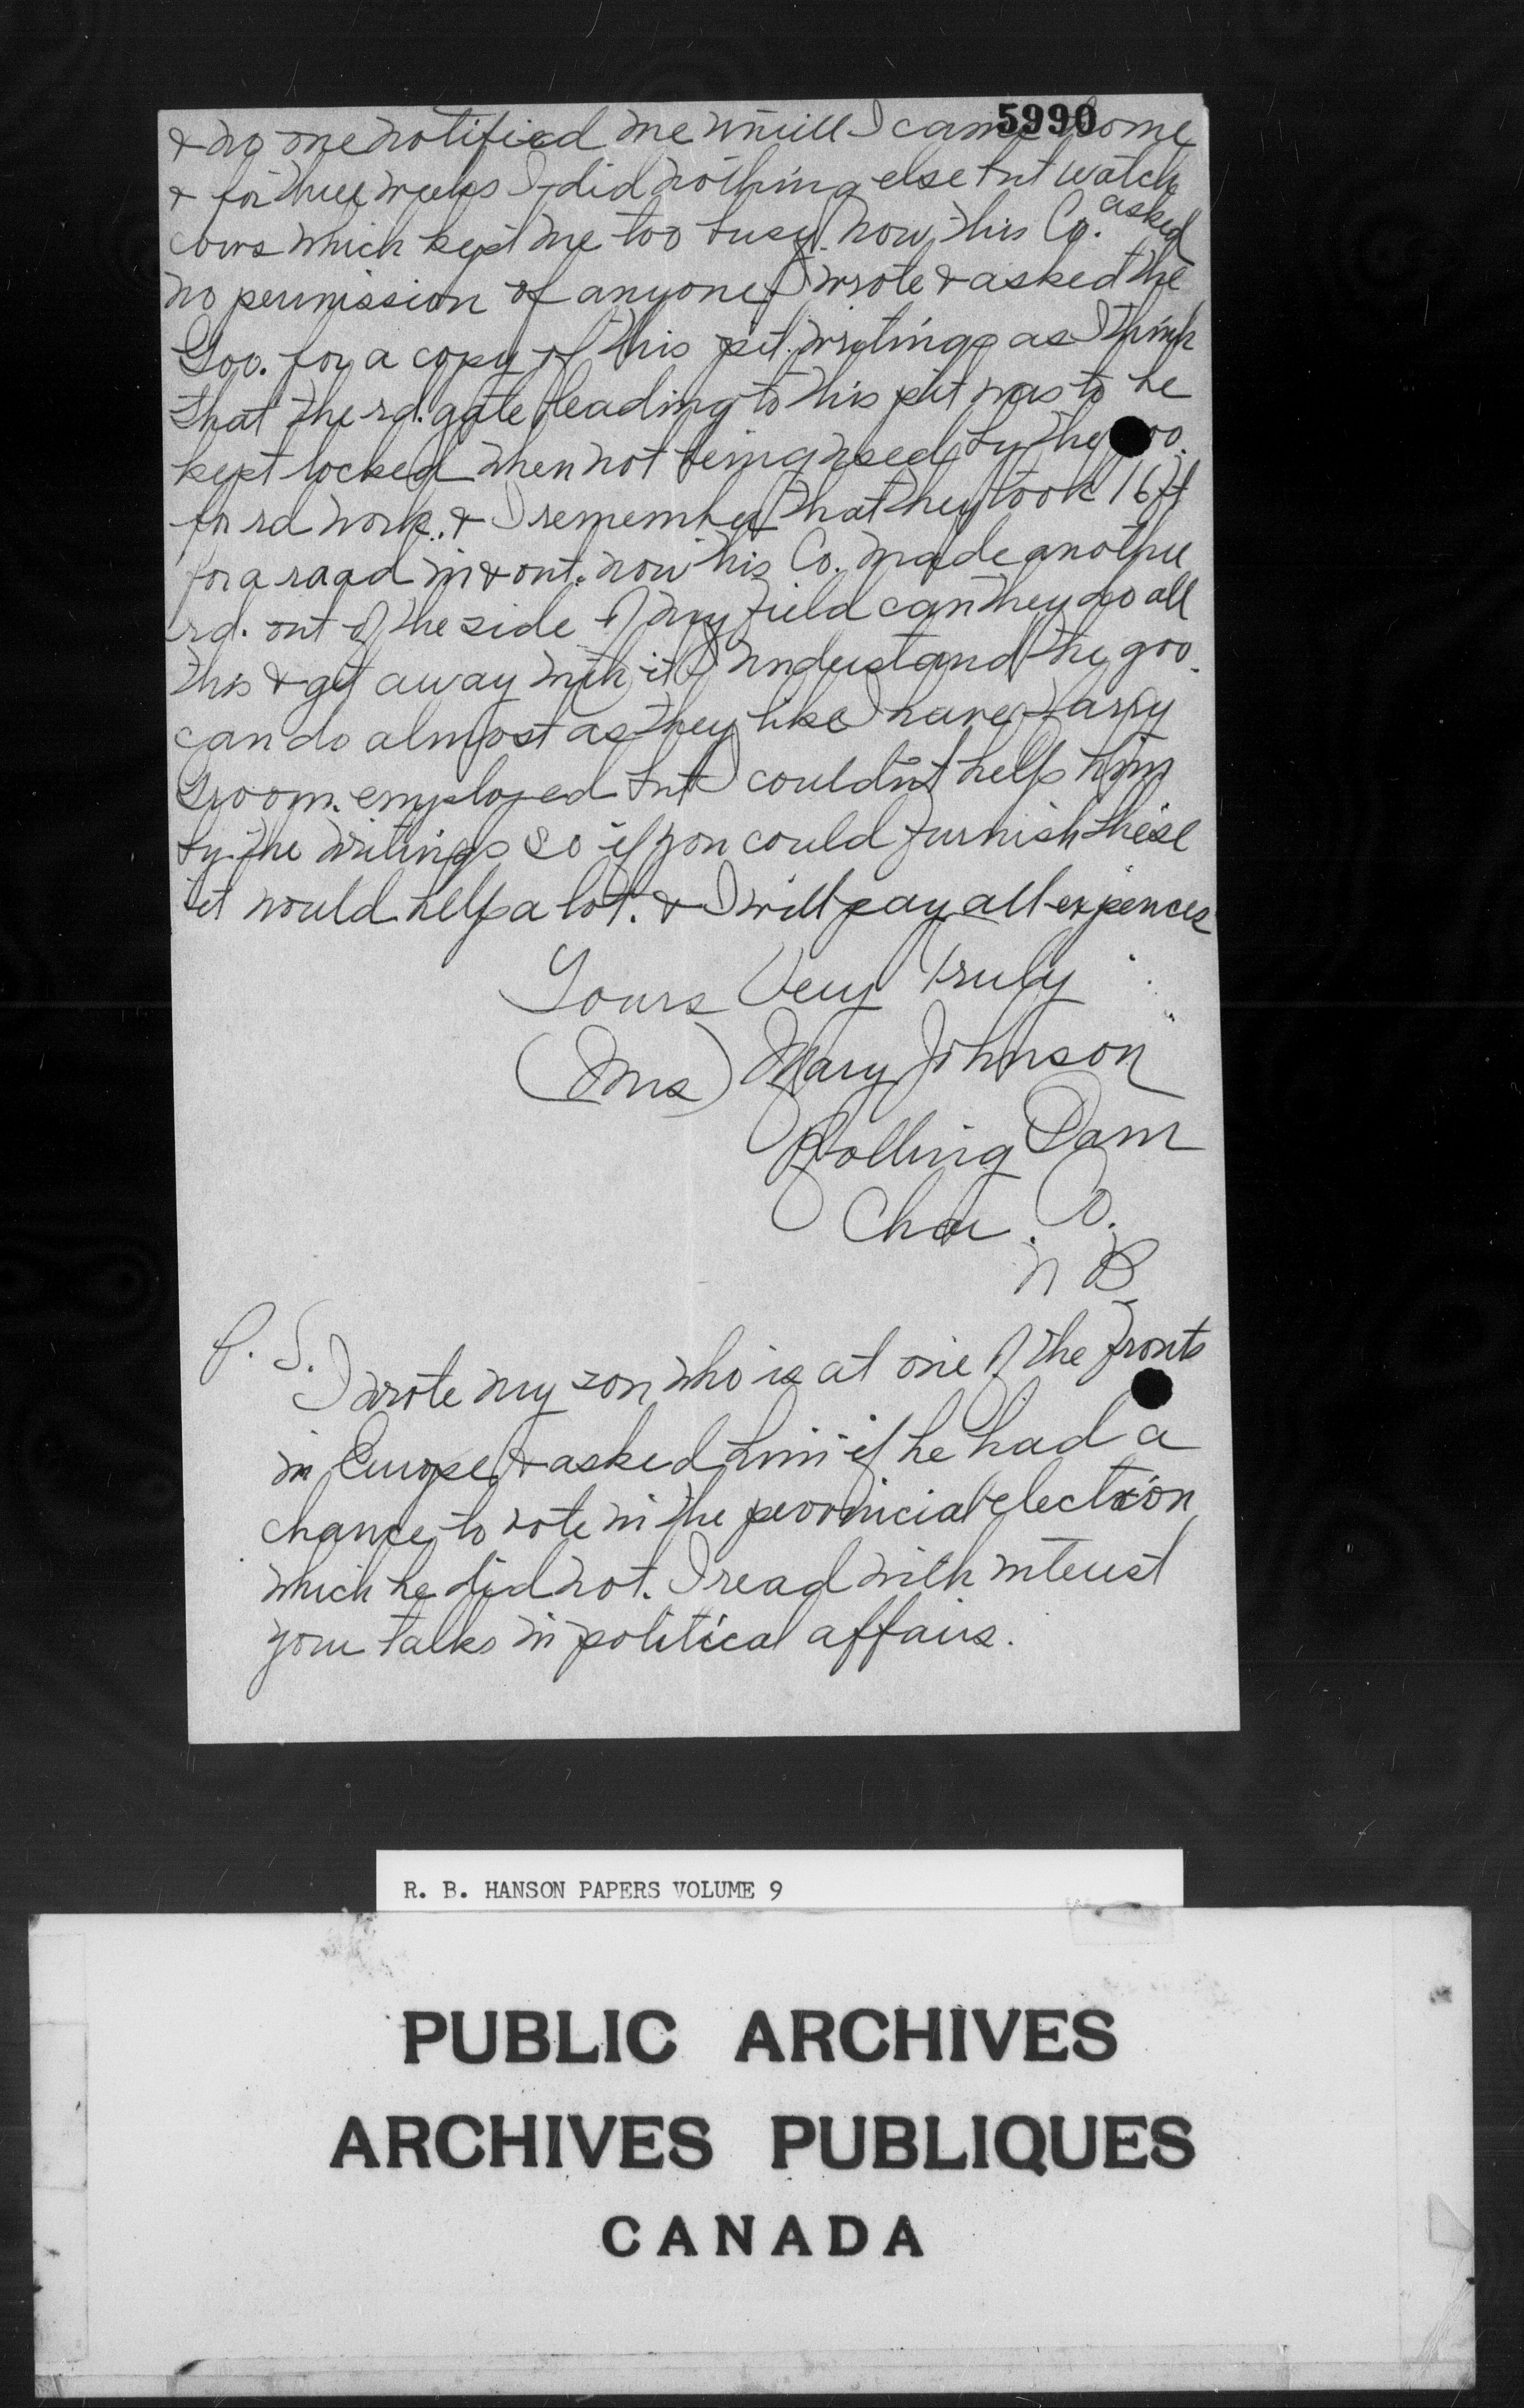 5990
& no one notified me untill I came home
& for three weeks I did nothing else but watch
cows which kept me too busy. now this Co. asked
no permission of anyone I wrote & asked the
Gov. for a copy of this pit writings as I think
that the rd. gate leading to this pit was to be
kept locked when not being used by the Gov.
for rd work. & I remember that they took 16 ft
for a raad in & out. now this Co. made another
rd. out of the side of my field can they do all
this & get away with it I understand the gov.
can do almost as they like I have Harry
Groom. employed but I couldn't help him
by the writings so if you could furnish these
it would help a lot. & I will pay all expences
Yours Very Truly
(Mrs) Mary Johnson
Rolling Dam
Char. Co.
N B
P. S.
I wrote my son who is at one of the fronts
in Europe & asked him if he had a
chance to vote in the provincial election
which he did not. I read with interest
your talks in political affairs.
R. B. HANSON PAPERS VOLUME 9
PUBLIC ARCHIVES
ARCHIVES PUBLIQUES
CANADA